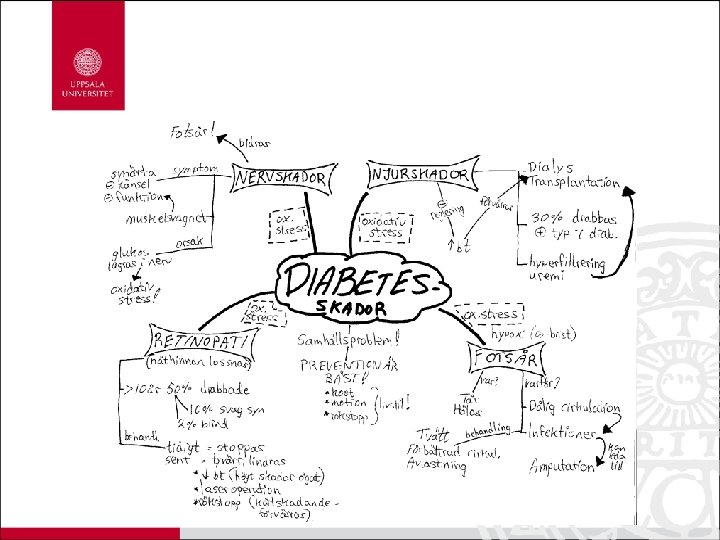 UPPSALA
UNIVERSITET
Fotsår!
bidrar
smärta
⊖ känsel
⊖ funktion
symptom
NERVSKADOR
muskelsvaghet
orsak
glukos
lagras i nerv
oxidativ
stress!
ox.
stress
NJURSKADOR
Dialys
Transplantation
⊖
rening
förvärras
↑ bt
30% drabbas
⊕ typ 1 diab.
hyperfiltrering
uremi
oxidativ
stress
DIABETES-
SKADOR
ox.
stress
RETINOPATI
(näthinnan lossnar)
>10år 50% drabbade
10% svag syn
2% blind
behandl.
tidigt = stoppas
sent =
lindras
* ↓ bt (högt skadar ögat)
* laseroperation
* rökstopp (kärlskadande-
förvärras)
Samhällsproblem!
PREVENTION ÄR
BÄST!
* kost
* motion
* rökstopp
livstil!
ox.stress
hypoxi (O₂ brist)
FOTSÅR
var?
Tår
Hälar
varför?
Dålig cirkulation
Infektioner
Amputation
behandling
Tvätt
Förbättrad cirkul.
Avlastning